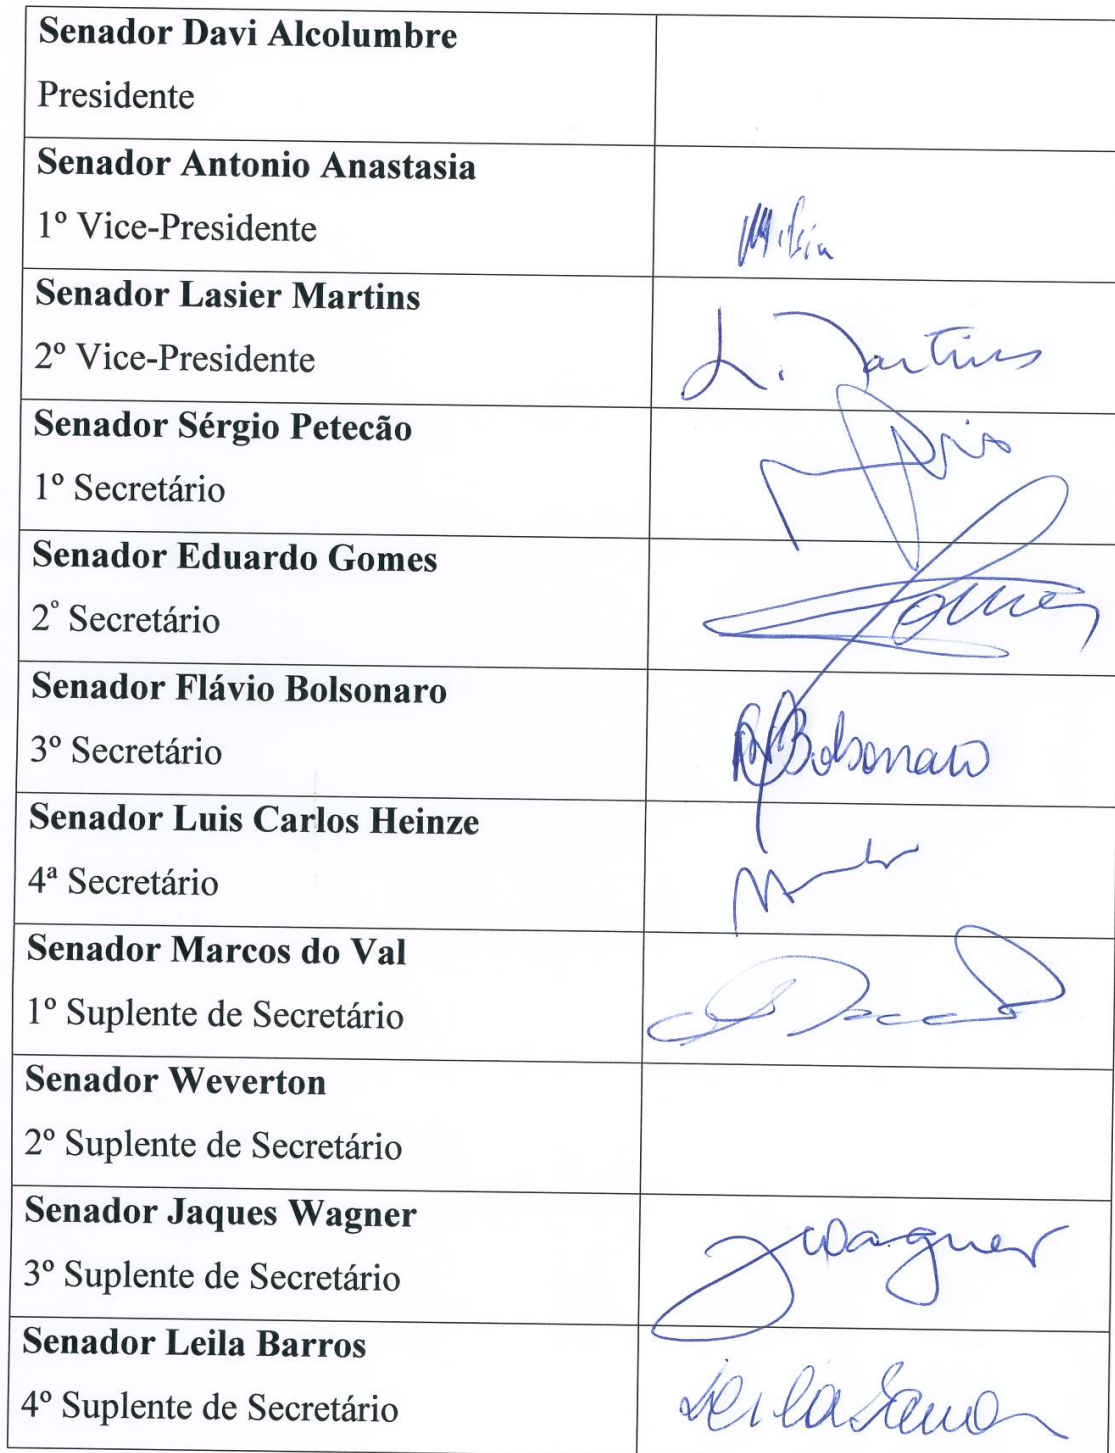 Senador Davi Alcolumbre
Presidente
Senador Antonio Anastasia
1º Vice-Presidente
Senador Lasier Martins
2º Vice-Presidente
L. Martins
Senador Sérgio Petecão
1º Secretário
Senador Eduardo Gomes
2º Secretário
Gomes
Senador Flávio Bolsonaro
3º Secretário
Bolsonaro
Senador Luis Carlos Heinze
4ª Secretário
Senador Marcos do Val
1º Suplente de Secretário
Senador Weverton
2º Suplente de Secretário
Senador Jaques Wagner
3º Suplente de Secretário
JWagner
Senador Leila Barros
4º Suplente de Secretário
Leila